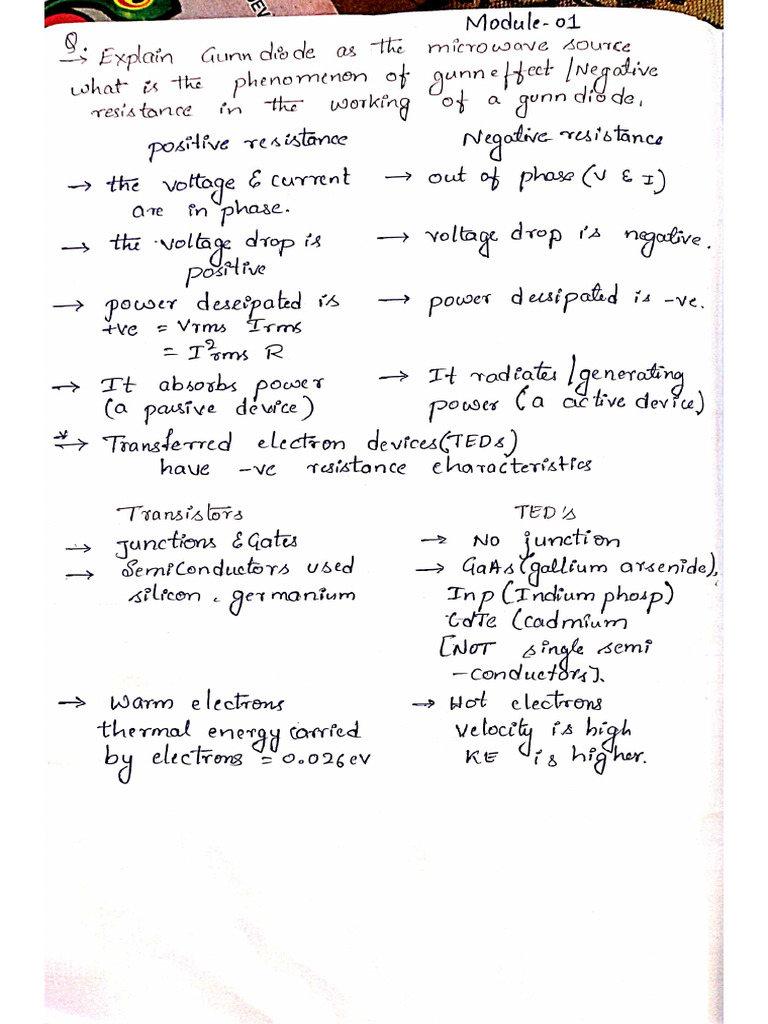 Module-01
Q.
→ Explain Gunn diode as the microwave source
what is the phenomenon of gunneffect/Negative
resistance in the working of a gunndiode.
positive resistance
Negative resistance
→ the voltage & current
are in phase.
→ out of phase (V & I)
→ the voltage drop is
positive
→ voltage drop is negative.
→ power deseipated is
+ve = Vrms Irms
= I²rms R
→ power deesipated is -ve.
→ It absorbs power
(a passive device)
→ It radiates/generating
power (a active device)
*→ Transferred electron devices(TEDs)
have -ve resistance characteristics
Transistors
TED's
→ Junctions & Gates
→ No junction
→ SemiConductors used
silicon, germanium
→ GaAs(gallium arsenide),
Inp (Indium phosp)
CdTe (cadmium
[NOT single semi
-conductors].
→ Warm electrons
thermal energy carried
by electrons = 0.026ev
→ Hot electrons
velocity is high
KE is higher.